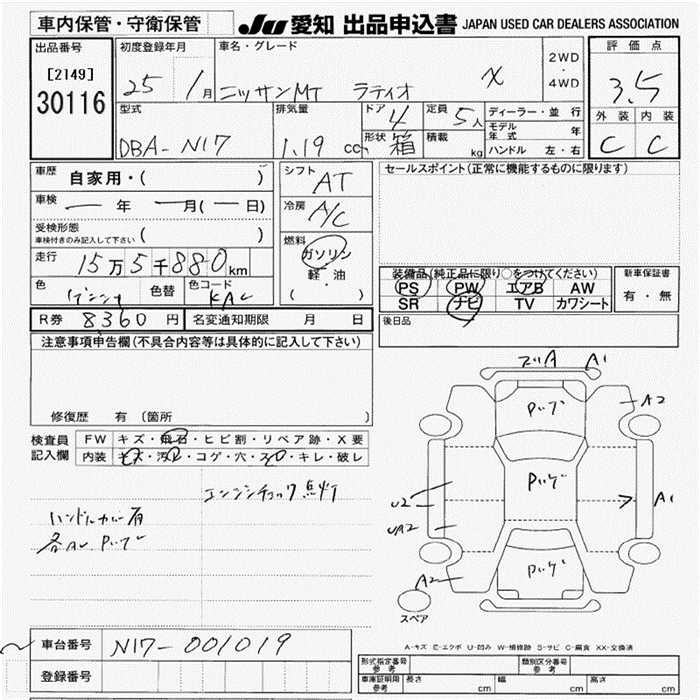 車内保管・守衛保管
JU 愛知 出品申込書 JAPAN USED CAR DEALERS ASSOCIATION
出品番号
[2149]
30116
初度登録年月
25 1月
車名・グレード
ニッサンMT ラティオ X
2WD
・
4WD
評価点
3.5
外装 内装
C C
型式
DBA-N17
排気量
1.19 cc
ドア 4
形状 箱
定員 5人
積載 kg
ディーラー・並行
モデル年式 年
ハンドル 左・右
車歴 自家用・( )
車検 ― 年 ―月(―日)
受検形態
車検付きのみ記入して下さい ( )
走行 15万5千880km
色 色替 色コード KAC
シフト AT
冷房 A/C
燃料
ガソリン
軽・油
・
( )
セールスポイント(正常に機能するものに限ります)
装備品(純正品に限り○をつけてください)
PS PW エアB AW
SR ナビ TV カワシート
新車保証書
有・無
R券 8360円 名変通知期限 月 日
後日品
注意事項申告欄(不具合内容等は具体的に記入して下さい)
修復歴 有(箇所 )
検査員記入欄
FW キズ・飛石・ヒビ割・リペア跡・X要
内装 キズ・汚れ・コゲ・穴・スレ・キレ・破レ
エンジンチェック点灯
ハンドルカバー有
A1
A2
U2
A1
UA2
A2
スペア
A-キズ E-エクボ U-凹み W-補修跡 S-サビ C-腐食 XX-交換済
車台番号 N17-001019
登録番号
形式指定番号 参考
類別区分番号 参考
車庫証明用 参考 長さ cm 幅 cm 高さ cm